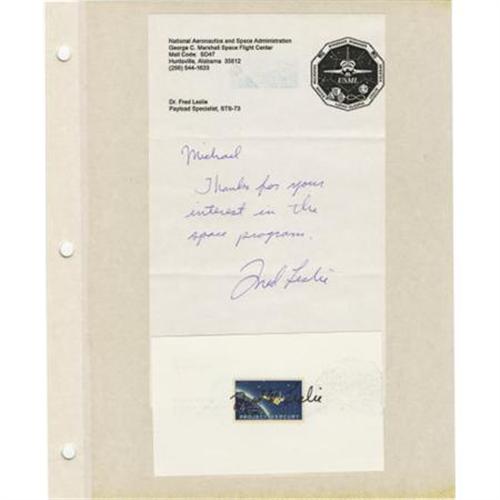 National Aeronautics and Space Administration
George C. Marshall Space Flight Center
Mail Code: SD47
Huntsville, Alabama 35812
(256) 544-1633
Dr. Fred Leslie
Payload Specialist, STS-73
USML
Michael
Thanks for your
interest in the
space program.
Fred Leslie
Leslie
PROJECT MERCURY